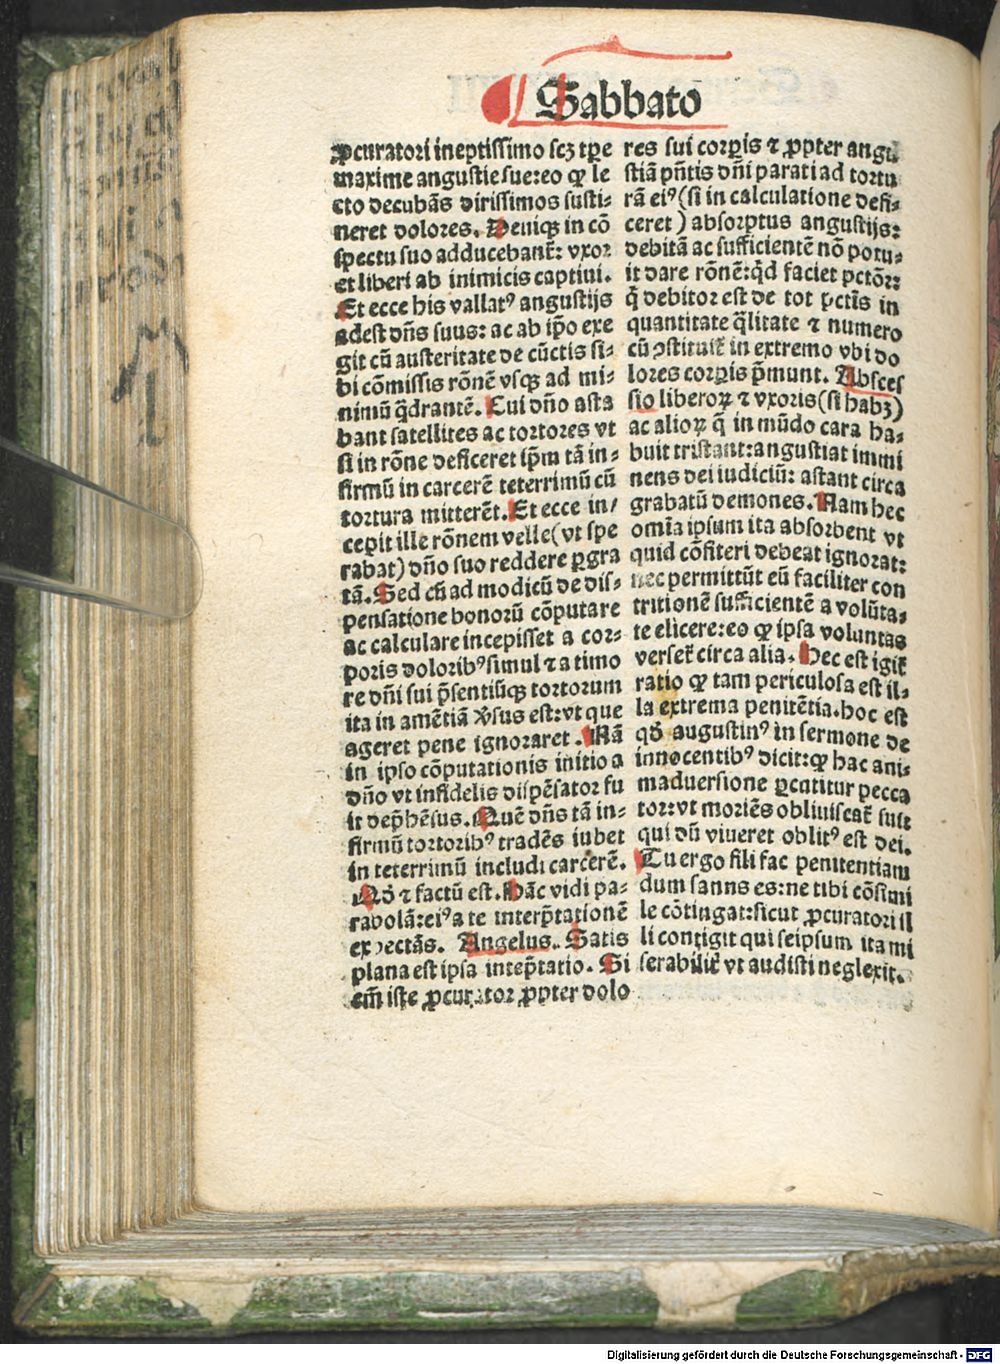 Sabbato
ꝓcuratori ineptissimo scꝫ tꝑe
maxime angustie sue: eo ꝙ le
cto decubãs dirissimos susti⸗
neret dolores. Deniqꝫ in cõ
spectu suo adducebant᷑: vxor
et liberi ab inimicis captiui.
Et ecce his vallatꝰ angustijs
adest dñs suus: ac ab ip̃o exe
git cũ austeritate de cũctis si⸗
bi cõmissis rõnẽ vsqꝫ ad mi⸗
nimũ q̃drantẽ. Cui dño asta
bant satellites ac tortores vt
si in rõne deficeret ip̃m tã in⸗
firmũ in carcerẽ teterrimũ cũ
tortura mitterẽt. Et ecce in⸗
cepit ille rõnem velle (vt spe
rabat) dño suo reddere ꝑgra
tã. Sed cũ ad modicũ de dis⸗
pensatione bonorũ cõputare
ac calculare incepisset a cor⸗
poris doloribꝰ simul ⁊ a timo
re dñi sui p̃sentiũqꝫ tortorum
ita in amẽtiã v̓sus est: vt que
ageret pene ignoraret. Nã
in ipso cõputationis initio a
dño vt infidelis dispẽsator fu
it dep̃hẽsus. Quẽ dñs tã in⸗
firmũ tortoribꝰ tradẽs iubet
in teterrimũ includi carcerẽ.
Qõ ⁊ factũ est. Hãc vidi pa⸗
rabolã: eiꝰ a te interp̃tationẽ
expectãs. Angelus. Satis
plana est ipsa intep̃tatio. Si
em̃ iste ꝓcurator ꝓpter dolo
res sui corꝑis ⁊ ꝓpter angu
stiã pñtis dñi parati ad tortu
rã eiꝰ (si in calculatione defi⸗
ceret) absorptus angustijs:
debitã ac sufficientẽ nõ potu⸗
it dare rõnẽ: q̃d faciet pctõr:
q̃ debitor est de tot pctĩs in
quantitate q̃litate ⁊ numero
cũ ꝯstituit᷑ in extremo vbi do
lores corꝑis p̃munt. Absces
sio liberoꝝ ⁊ vxoris (si habꝫ)
ac alioꝝ q̃ in mũdo cara ha⸗
buit tristant: angustiat immi
nens dei iudiciũ: astant circa
grabatũ demones. Nam hec
omĩa ipsum ita absorbent vt
quid cõfiteri debeat ignorat:
nec permittũt eũ faciliter con
tritionẽ sufficientẽ a volũta⸗
te elicere: eo ꝙ ipsa voluntas
verset᷑ circa alia. Hec est igit᷑
ratio ꝙ tam periculosa est il⸗
la extrema penitẽtia. hoc est
qõ augustinꝰ in sermone de
innocentibꝰ dicit: ꝙ hac ani⸗
maduersione ꝑcutitur pecca
tor: vt moriẽs obliuiscat᷑ sui:
qui dũ viueret oblitꝰ est dei.
Tu ergo fili fac penitentiam
dum sanus es: ne tibi cõsimi
le cõtingat: sicut ꝓcuratori il
li contigit qui seipsum ita mi
serabilit᷑ vt audisti neglexit.
Digitalisierung gefördert durch die Deutsche Forschungsgemeinschaft - DFG